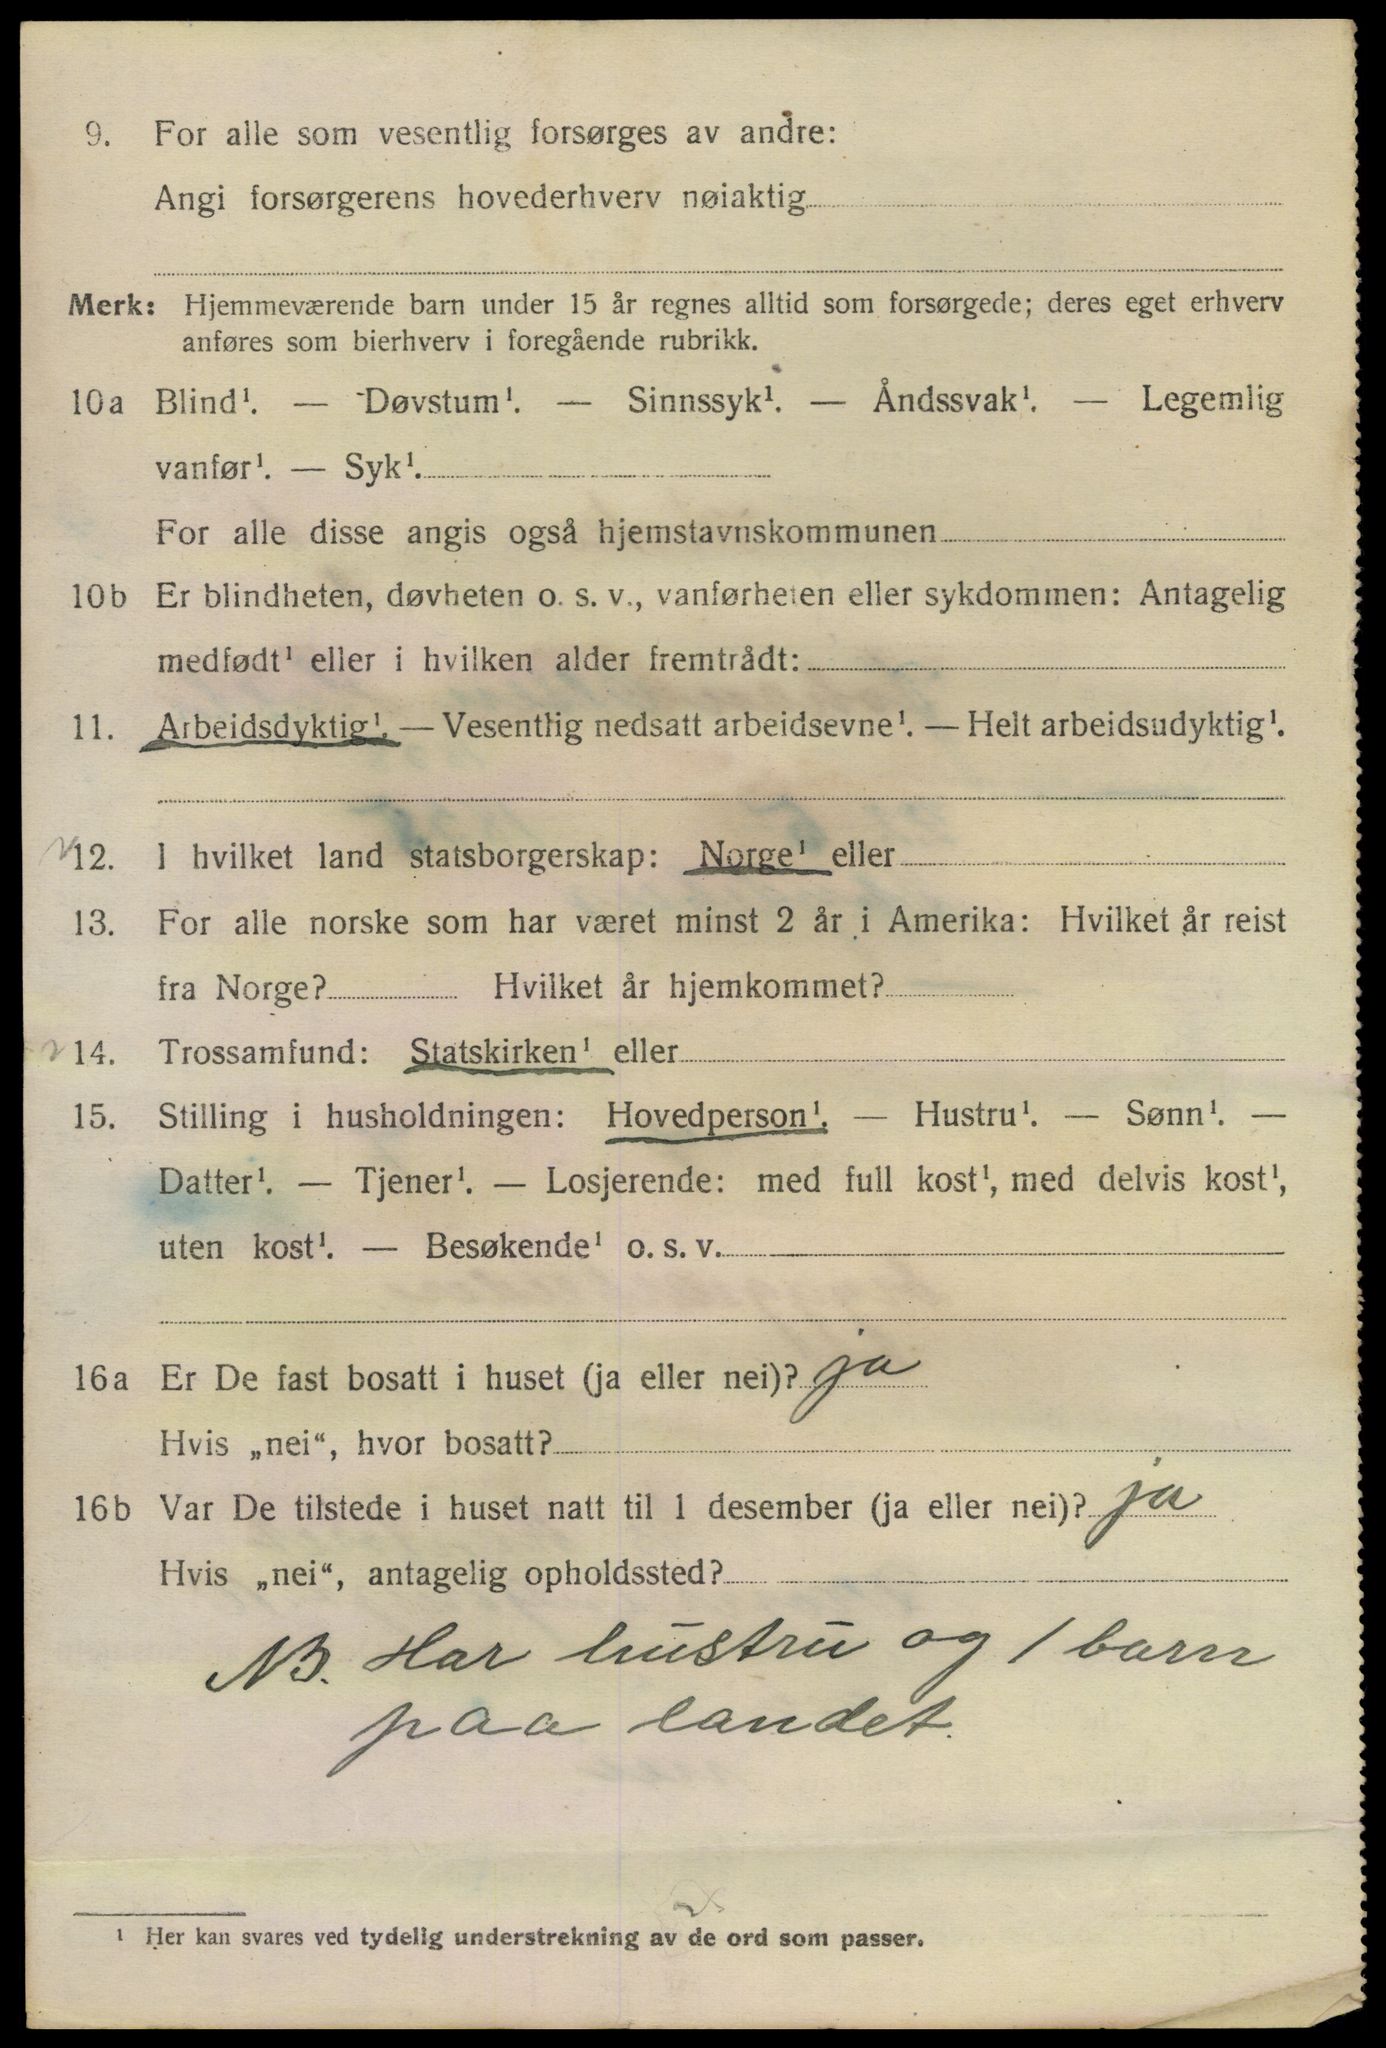 9. For alle som vesentlig forsørges av andre:
Angi forsørgerens hovederhverv nøiaktig
Merk: Hjemmeværende barn under 15 år regnes alltid som forsørgede; deres eget erhverv
anføres som bierhverv i foregående rubrikk.
10a Blind¹. — Døvstum¹. — Sinnssyk¹. — Åndssvak¹. — Legemlig
vanfør¹. — Syk¹.
For alle disse angis også hjemstavnskommunen
10b Er blindheten, døvheten o. s. v., vanførheten eller sykdommen: Antagelig
medfødt¹ eller i hvilken alder fremtrådt:
11. Arbeidsdyktig¹. — Vesentlig nedsatt arbeidsevne¹. — Helt arbeidsudyktig¹.
12. I hvilket land statsborgerskap: Norge¹ eller
13. For alle norske som har været minst 2 år i Amerika: Hvilket år reist
fra Norge? Hvilket år hjemkommet?
14. Trossamfund: Statskirken¹ eller
15. Stilling i husholdningen: Hovedperson¹. — Hustru¹. — Sønn¹. —
Datter¹. — Tjener¹. — Losjerende: med full kost¹, med delvis kost¹,
uten kost¹. — Besøkende¹ o. s. v.
16a Er De fast bosatt i huset (ja eller nei)? ja
Hvis „nei“, hvor bosatt?
16b Var De tilstede i huset natt til 1 desember (ja eller nei)? ja
Hvis „nei“, antagelig opholdssted?
NB. Har hustru og 1 barn
paa landet.
¹ Her kan svares ved tydelig understrekning av de ord som passer.